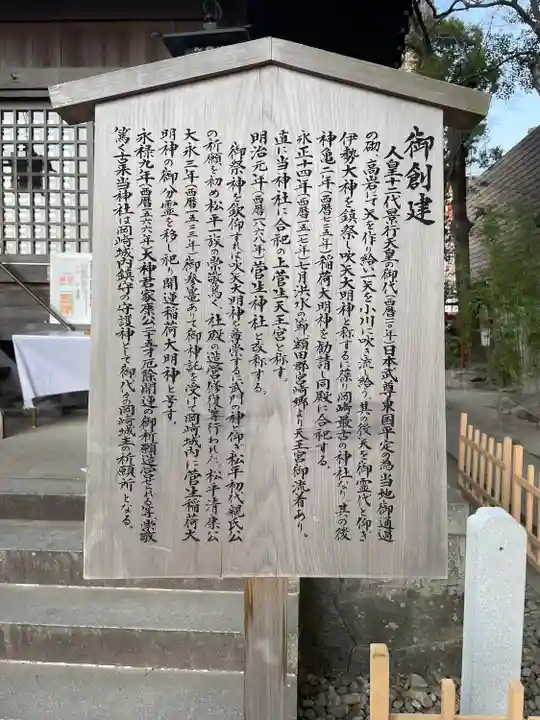 御創建
人皇十二代景行天皇の御代(西暦一一〇年)日本武尊東国平定の為当地御通過
の砌、高岩にて矢を作り給い一矢を小川に吹き流し給う其の後矢を御霊代と仰ぎ
伊勢大神を鎮祭し吹矢大明神と称するに葆り岡崎最古の神社なり其の後
神亀二年(西暦七二五年)稲荷大明神を勧請し同殿に合祀する。
永正十四年(西暦一五一七年)七月洪水の節、額田郡宮崎郷より天王宮御流着あり。
直に当神社に合祀の上菅生天王宮と称す。
明治元年(西暦一八六八年)菅生神社と改称する。
御祭神を欽仰すれば吹矢大明神を尊崇するに武門の神と仰ぎ松平初代親氏公
の祈願を初め松平一族の崇敬高く社殿の造営修復等行われた。松平清康公
大永三年(西暦一五二三年)御参籠あって御神託を受けて岡崎城内に菅生稲荷大
明神の御分霊を移し祀り開運稲荷大明神と号す。
永禄九年(西暦一五六六年)天神君家康公二十五才厄除開運の御祈願造営せられる等崇敬
篤く古来当神社は岡崎城内鎮守の守護神として御代々の岡崎城主の祈願所となる。